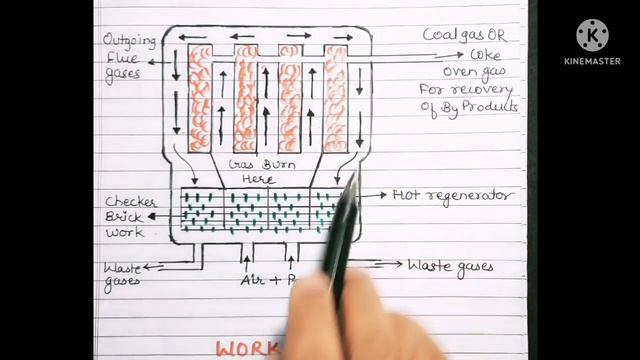 Outgoing
Flue
gases
Coal gas OR
Coke
Oven gas
For recovery
Of By Products
KINEMASTER
Gas Burn
Here
Checker
Brick
work
Hot regenerator
Waste
gases
Air +
Waste gases
WORK